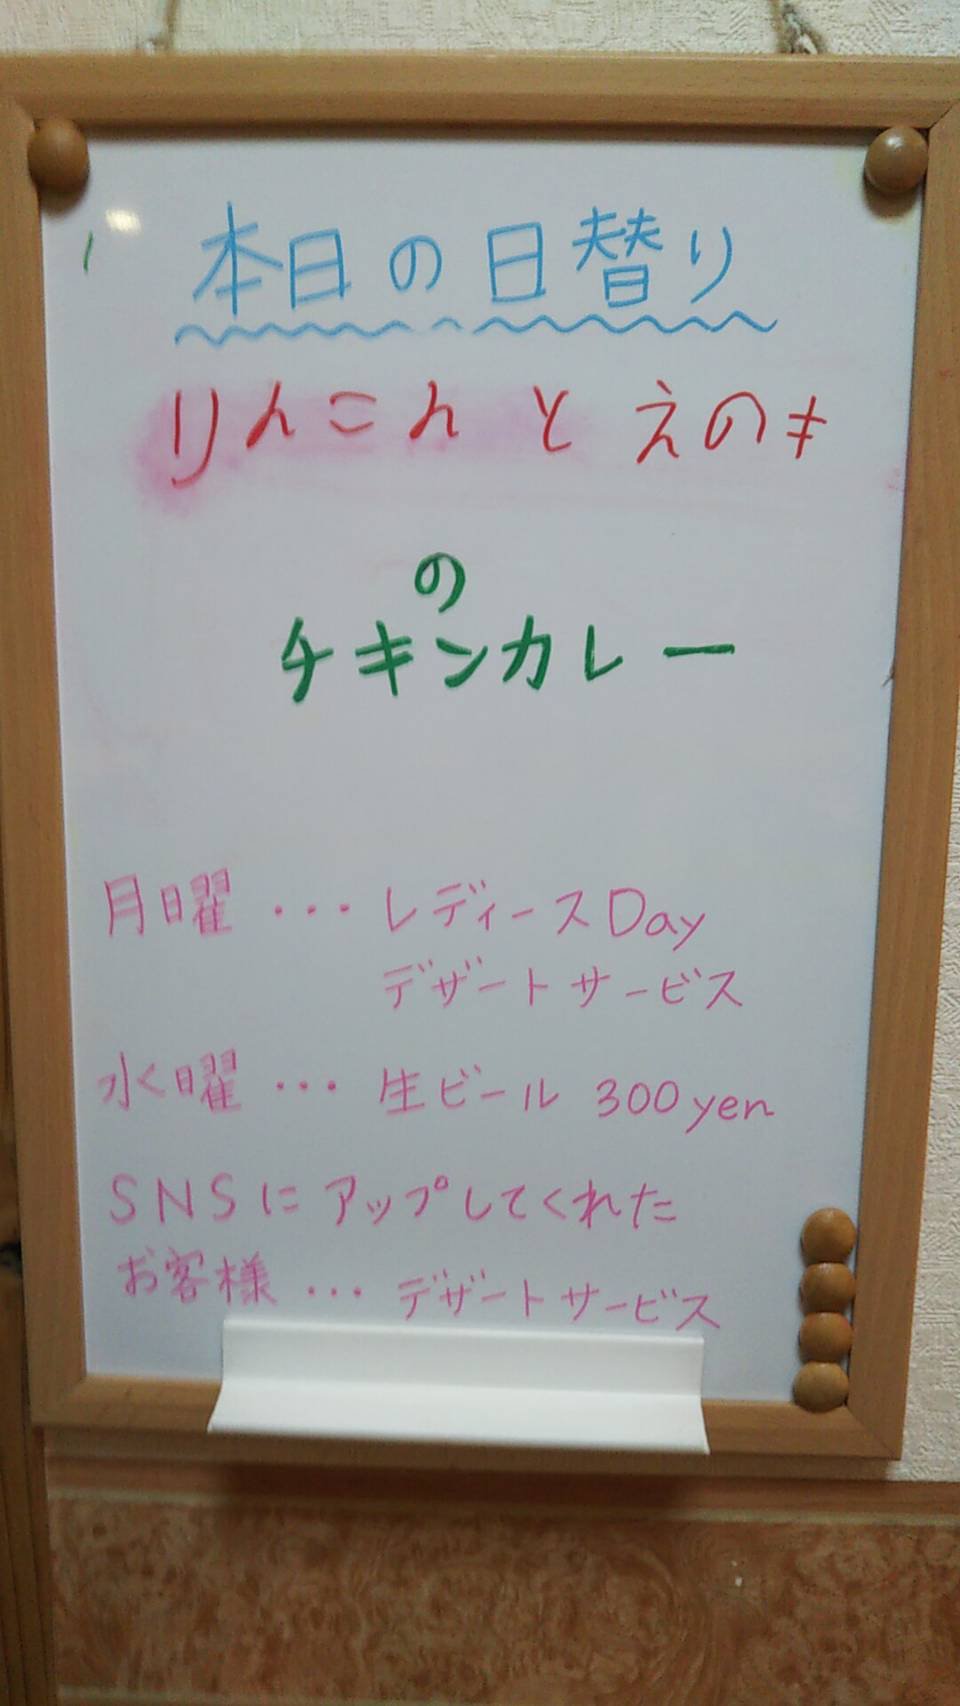 本日の日替り
りんこん と えのキ
の
チキンカレー
月曜 ・・・ レディースDay
デザートサービス
水曜 ・・・ 生ビール 300yen
SNSにアップしてくれた
お客様 ・・・ デザートサービス